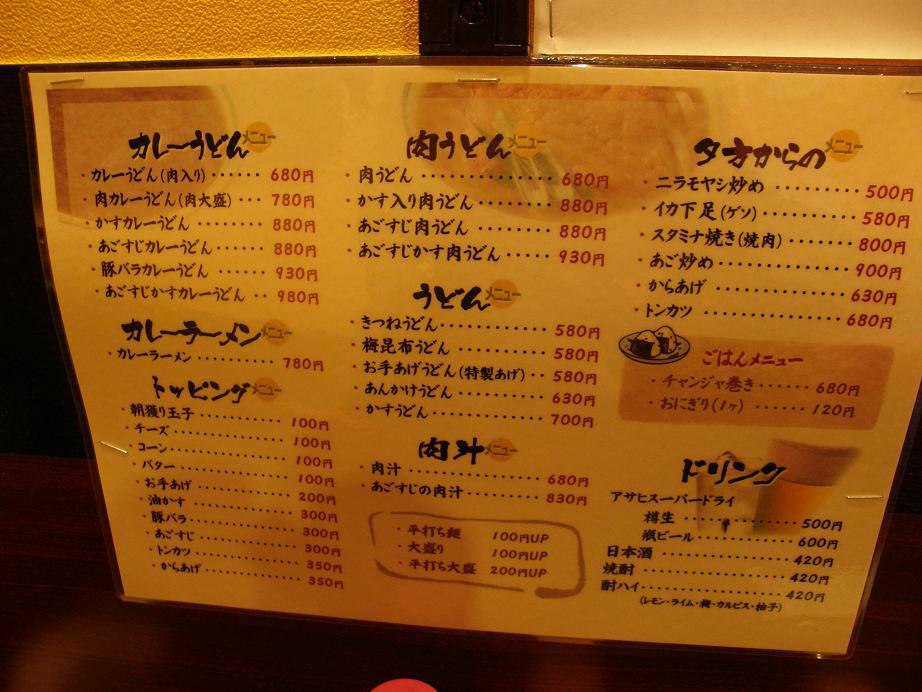 カレーうどん メニュー
・カレーうどん(肉入り)・・・・・・ 680円
・肉カレーうどん(肉大盛)・・・・・ 780円
・かすカレーうどん ・・・・・・ 880円
・あごすじカレーうどん ・・・・・・ 880円
・豚バラカレーうどん ・・・・・・ 930円
・あごすじかすカレーうどん ・・ 980円
カレーラーメン メニュー
・カレーラーメン ・・・・・・・・・・ 780円
トッピング メニュー
・朝獲り玉子 ・・・・・・・・・・ 100円
・チーズ ・・・・・・・・・・ 100円
・コーン ・・・・・・・・・・ 100円
・バター ・・・・・・・・・・ 100円
・お手あげ ・・・・・・・・・・ 200円
・油かす ・・・・・・・・・・ 300円
・豚バラ ・・・・・・・・・・ 300円
・あごすじ ・・・・・・・・・・ 300円
・トンカツ ・・・・・・・・・・ 350円
・からあげ ・・・・・・・・・・ 350円
肉うどん メニュー
・肉うどん ・・・・・・・・・・ 680円
・かす入り肉うどん ・・・・・・ 880円
・あごすじ肉うどん ・・・・・・ 880円
・あごすじかす肉うどん ・・・・・ 930円
うどん メニュー
・きつねうどん・・・・・・・・・・ 580円
・梅昆布うどん ・・・・・・・・・ 580円
・お手あげうどん(特製あげ)・・ 580円
・あんかけうどん ・・・・・・・・ 630円
・かすうどん ・・・・・・・・・・ 700円
肉汁 メニュー
・肉汁 ・・・・・・・・・・ 680円
・あごすじの肉汁 ・・・・・・・・ 830円
・平打ち麺 100円UP
・大盛り 100円UP
・平打ち大盛 200円UP
夕方からの メニュー
・ニラモヤシ炒め ・・・・・・・・ 500円
・イカ下足(ゲソ) ・・・・・・・・ 580円
・スタミナ焼き(焼肉) ・・・・・ 800円
・あご炒め ・・・・・・・・・・ 900円
・からあげ ・・・・・・・・・・ 630円
・トンカツ ・・・・・・・・・・ 680円
ごはんメニュー
・チャンジャ巻き ・・・・・・ 680円
・おにぎり(1ヶ) ・・・・・・ 120円
ドリンク
アサヒスーパードライ
樽生 ・・・・・・・・・・ 500円
瓶ビール ・・・・・・・・・・ 600円
日本酒 ・・・・・・・・・・ 420円
焼酎 ・・・・・・・・・・ 420円
酎ハイ・・・・・・・・・・ 420円
(レモン・ライム・梅・カルピス・柚子)